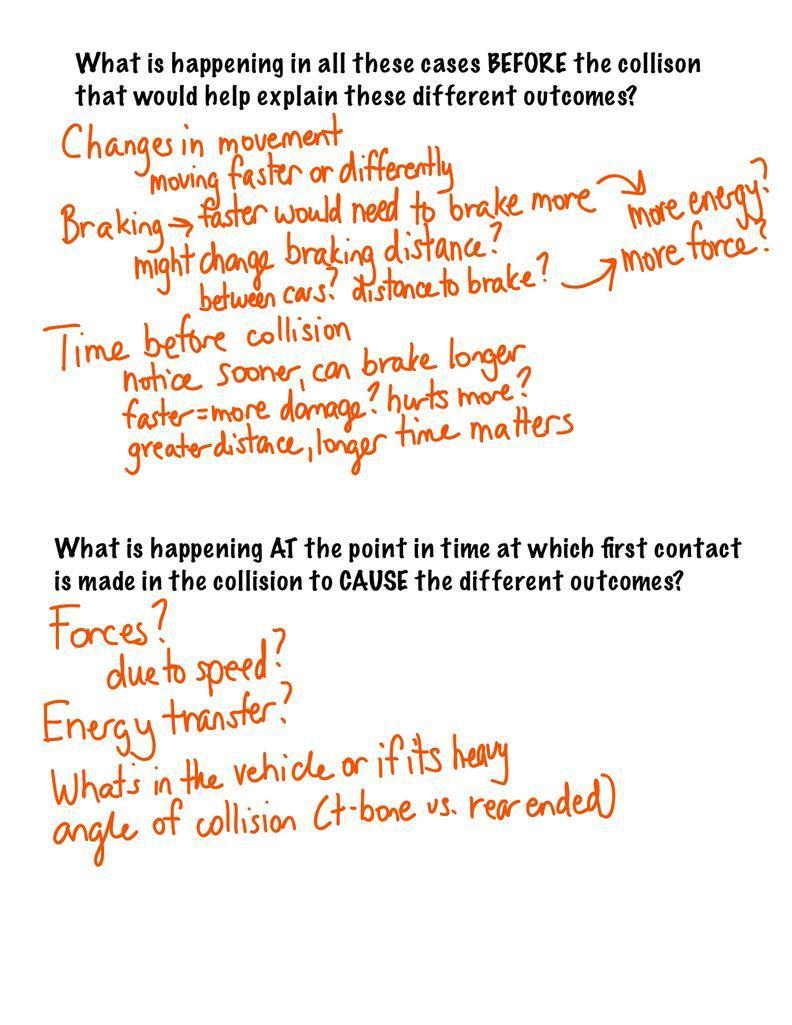 What is happening in all these cases BEFORE the collison
that would help explain these different outcomes?
Changes in movement
moving faster or differently
Braking → faster would need to brake more → more energy?
might change braking distance?
between cars? distance to brake? → more force?
Time before collision
notice sooner, can brake longer
faster = more damage? hurts more?
greater distance, longer time matters
What is happening AT the point in time at which first contact
is made in the collision to CAUSE the different outcomes?
Forces?
due to speed?
Energy transfer?
What's in the vehicle or if its heavy
angle of collision (t-bone vs. rear ended)